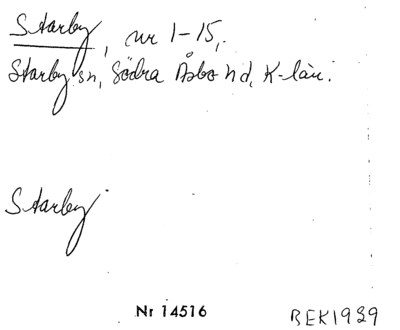 Starby, nr 1-15,
Starby sn, Södra Åsbo hd, K-län.
Starby
Nr 14516 BEK1939